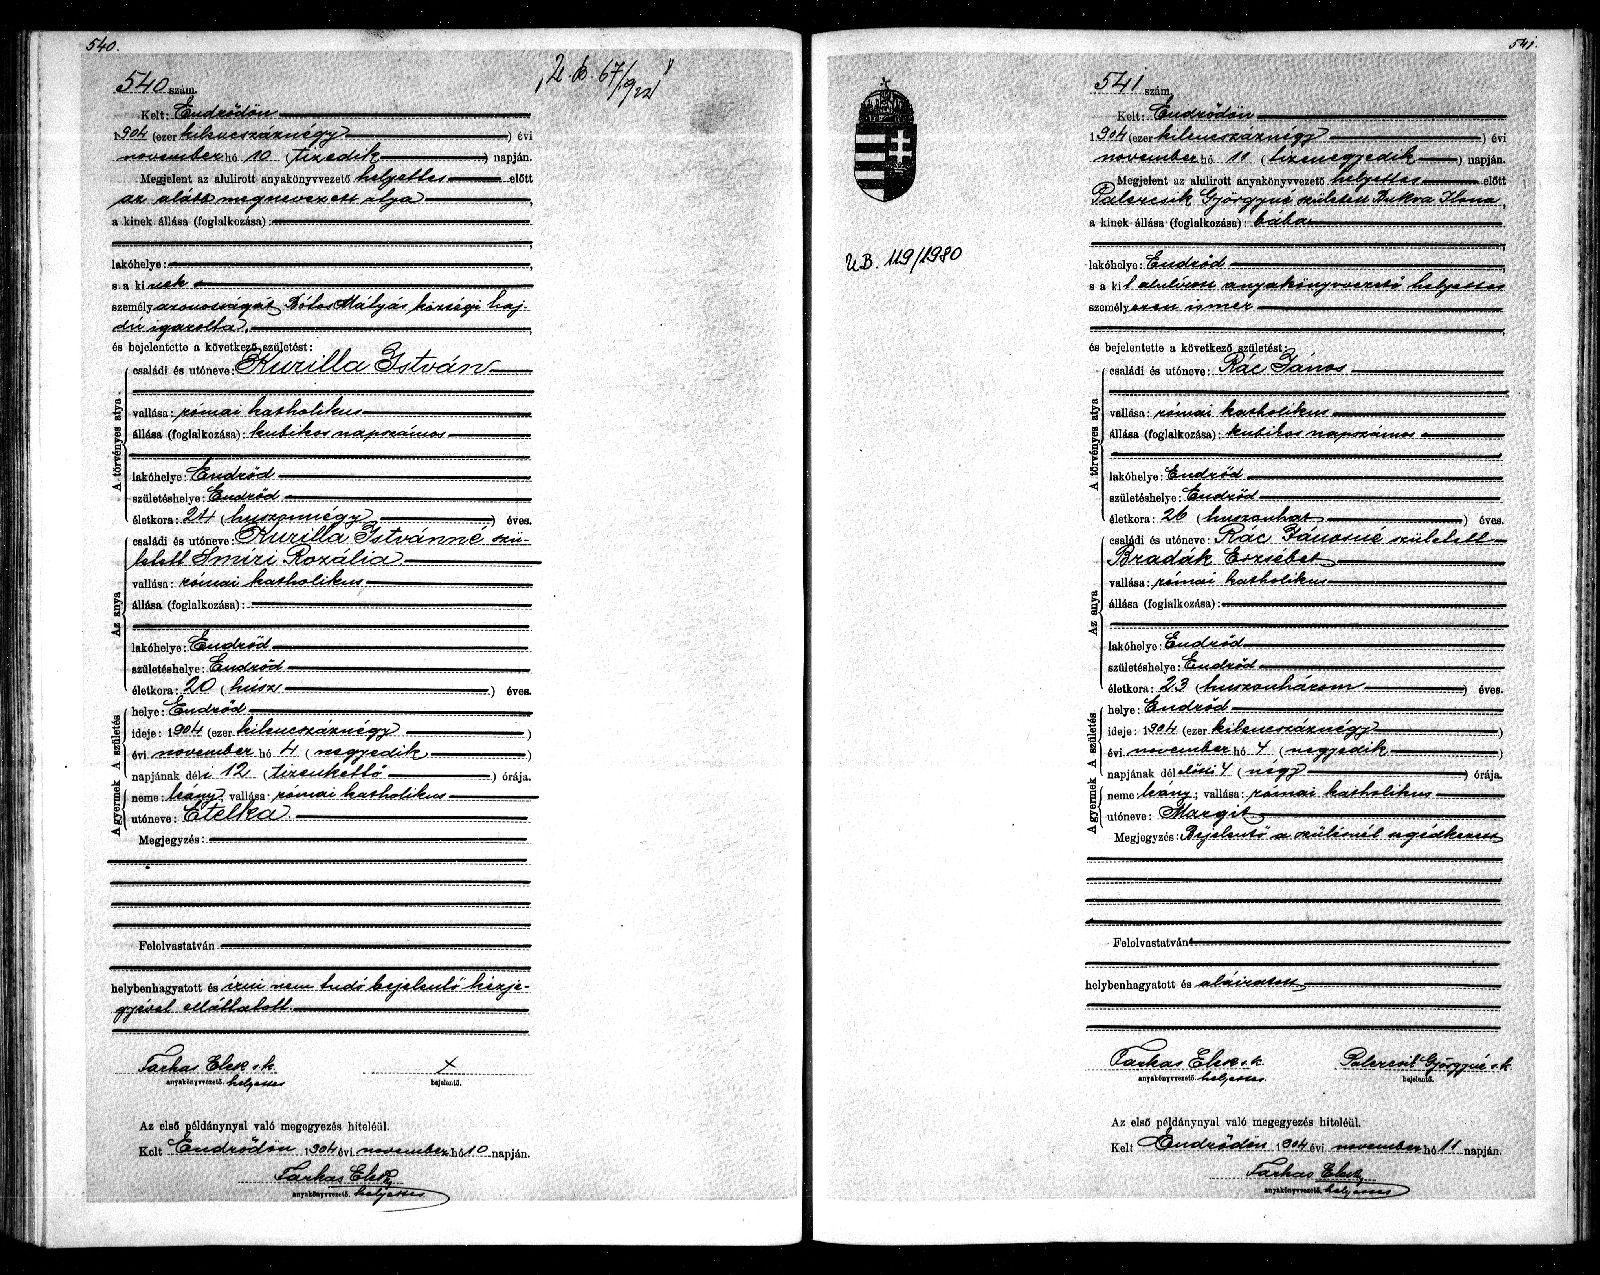 540.
540 szám.
Kelt: Endrődön
1904 (ezer kilencszáznégy) évi
november hó 10 (tizedik) napján.
Megjelent az alulirott anyakönyvvezető helyettes előtt
az alább megnevezett atya,
a kinek állása (foglalkozása):
lakóhelye:
s a kinek
személyazonosságát Mátyás községi haj-
dú igazolta,
és bejelentette a következő születést:
A törvényes atya
családi és utóneve: Kurilla István
vallása: római katholikus
állása (foglalkozása): kubikos napszámos
lakóhelye: Endrőd
születéshelye: Endrőd
életkora: 24 (huszonnégy) éves.
Az anya
családi és utóneve: Kurilla Istvánné szü-
letett Smiri Rozália
vallása: római katholikus
állása (foglalkozása):
lakóhelye: Endrőd
születéshelye: Endrőd
életkora: 20 (húsz) éves.
A születés
helye: Endrőd
ideje: 1904 (ezer kilencszáznégy)
évi november hó 4 (negyedik)
napjának déli 12 (tizenkettő) órája.
A gyermek
neme: leány; vallása: római katholikus
utóneve: Etelka
Megjegyzés:
Felolvastatván
helybenhagyatott és írni nem tudó bejelentő kézje-
gyével elláttatott.
Farkas Elek s.k. x
anyakönyvvezető. helyettes bejelentő.
Az első példánynyal való megegyezés hiteléül.
Kelt Endrődön 1904 évi november hó 10 napján.
Farkas Elek
anyakönyvvezető. helyettes
541.
U.B. 119/1980
541 szám.
Kelt: Endrődön
1904 (ezer kilencszáznégy) évi
november hó 11 (tizenegyedik) napján.
Megjelent az alulirott anyakönyvvezető helyettes előtt
Palercsik Györgyné született Bukva Ilona,
a kinek állása (foglalkozása): bába
lakóhelye: Endrőd
s a kit alulirott anyakönyvvezető helyettes
személyesen ismer
és bejelentette a következő születést:
A törvényes atya
családi és utóneve: Rác János
vallása: római katholikus
állása (foglalkozása): kubikos napszámos
lakóhelye: Endrőd
születéshelye: Endrőd
életkora: 26 (huszonhat) éves.
Az anya
családi és utóneve: Rác Jánosné született
Bradák Erzsébet
vallása: római katholikus
állása (foglalkozása):
lakóhelye: Endrőd
születéshelye: Endrőd
életkora: 23 (huszonhárom) éves.
A születés
helye: Endrőd
ideje: 1904 (ezer kilencszáznégy)
évi november hó 4 (negyedik)
napjának délelőtti 4 (négy) órája.
A gyermek
neme: leány; vallása: római katholikus
utóneve: Margit
Megjegyzés: Bejelentő a szülésnél segédkezett
Felolvastatván
helybenhagyatott és aláiratott
Farkas Elek s.k. Palercsik Györgyné s.k.
anyakönyvvezető. helyettes bejelentő.
Az első példánynyal való megegyezés hiteléül.
Kelt Endrődön 1904 évi november hó 11 napján.
Farkas Elek
anyakönyvvezető. helyettes